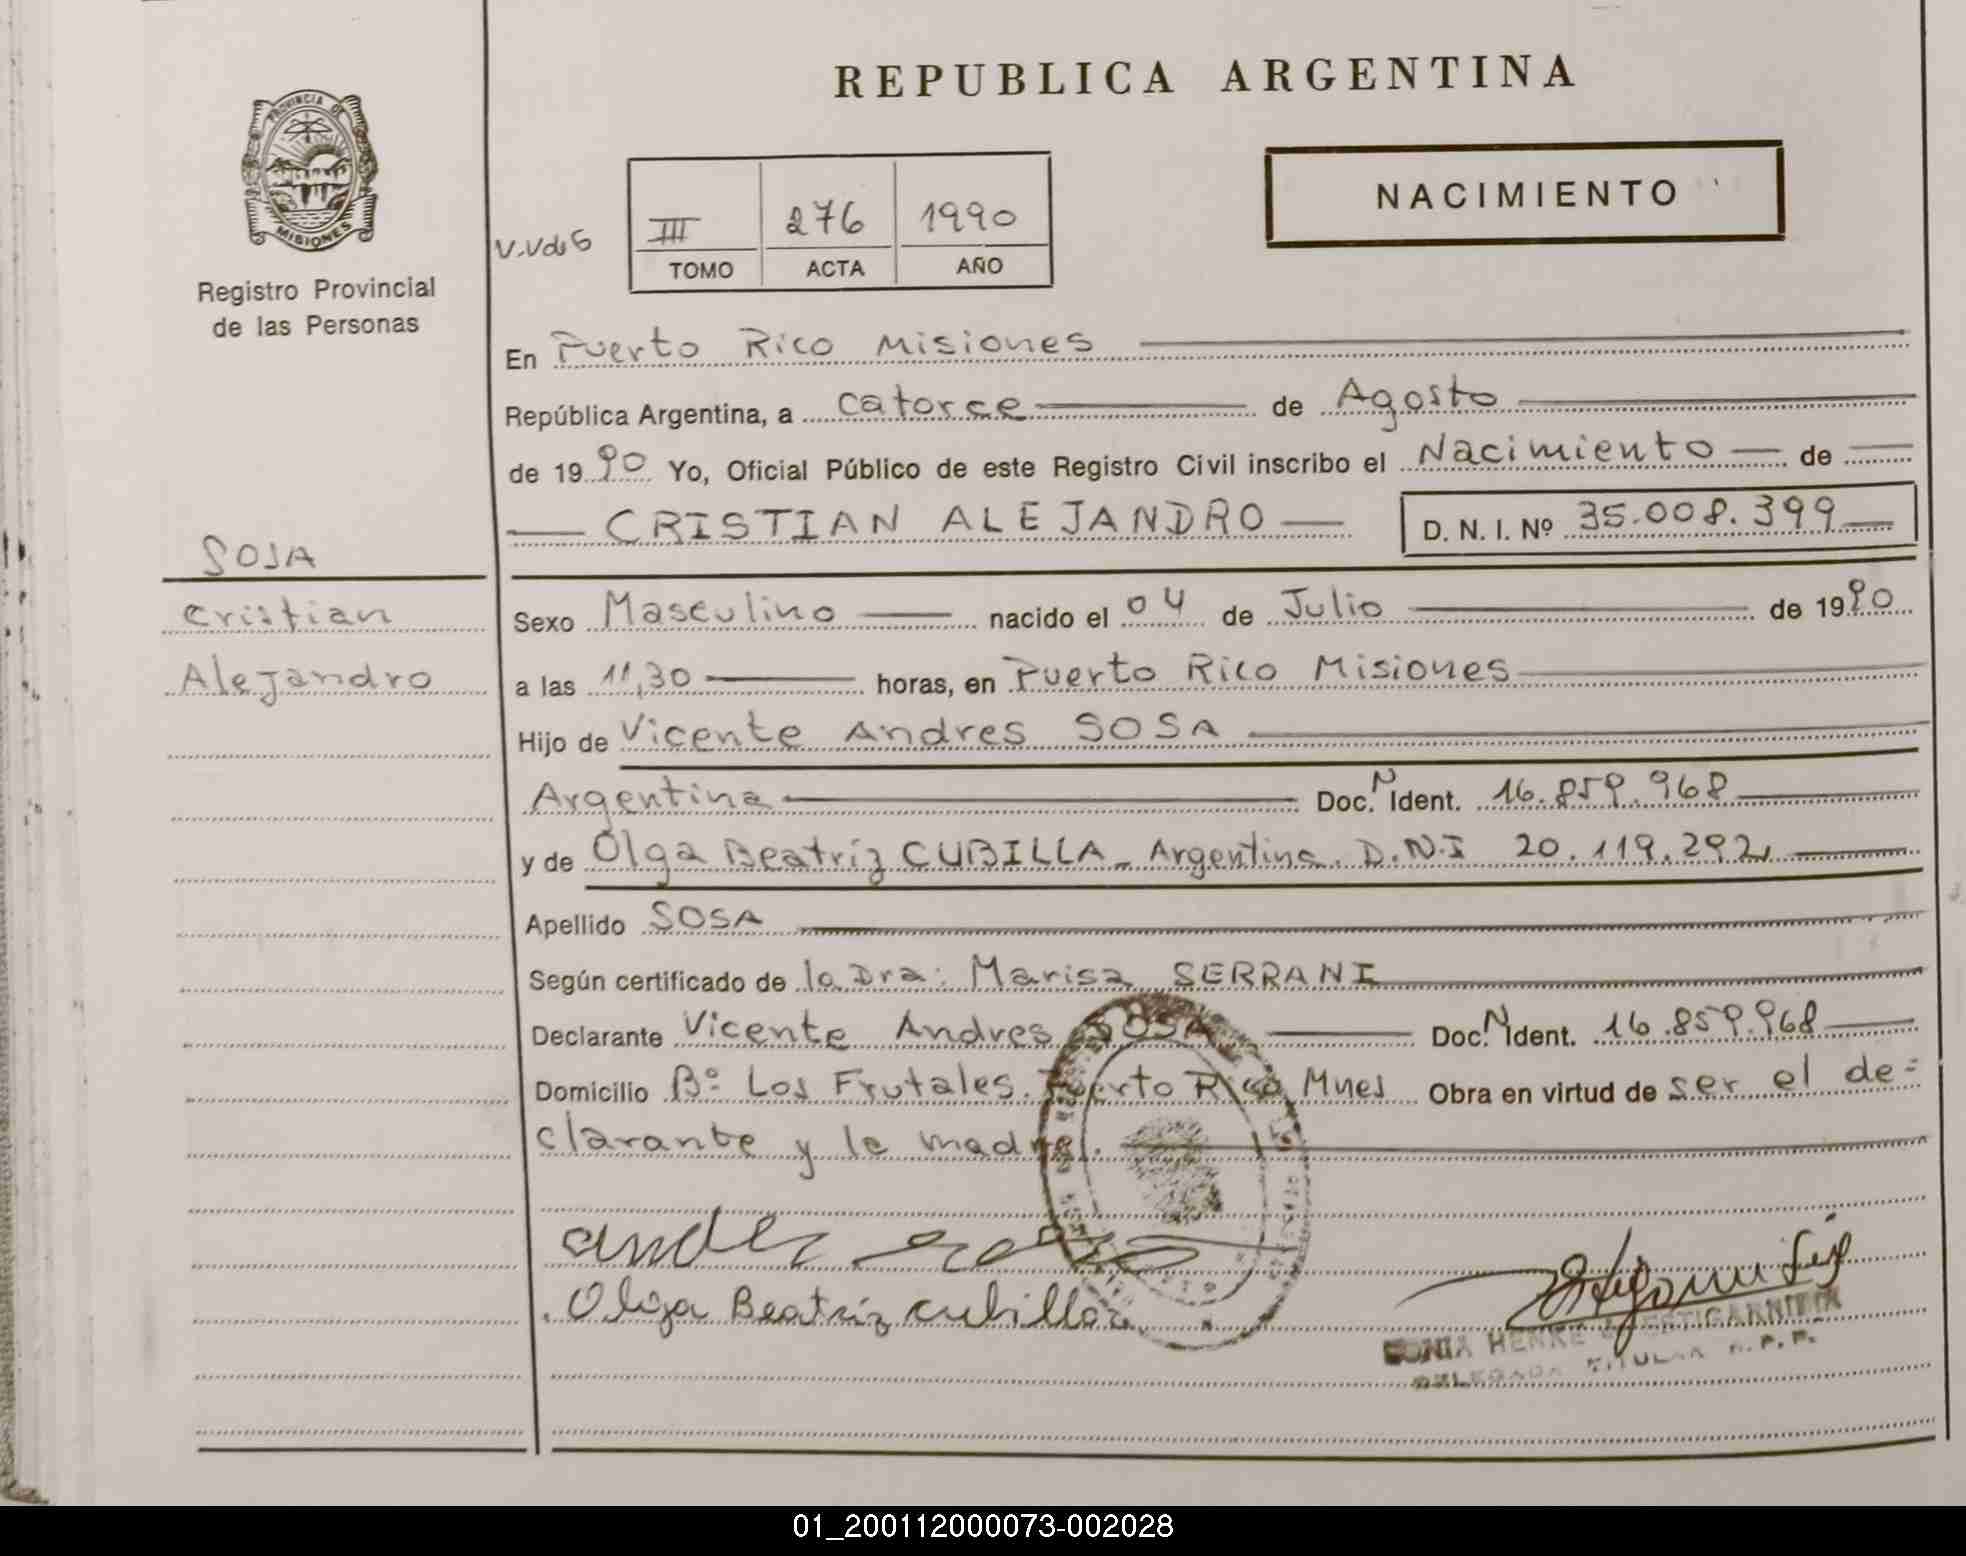 REPUBLICA ARGENTINA
PROVINCIA DE
MISIONES
Registro Provincial
de las Personas
V.Vdo G
III 276 1990
TOMO ACTA AÑO
NACIMIENTO
En Puerto Rico Misiones
República Argentina, a catorce de Agosto
de 1990 Yo, Oficial Público de este Registro Civil inscribo el Nacimiento de
CRISTIAN ALEJANDRO D. N. I. Nº 35.008.399
SOSA
Cristian
Alejandro
Sexo Masculino nacido el 04 de Julio de 1990
a las 11,30 horas, en Puerto Rico Misiones
Hijo de Vicente Andres SOSA
Argentina Doc. N Ident. 16.859.968
y de Olga Beatriz CUBILLA - Argentina. D.N.I 20.119.292
Apellido SOSA
Según certificado de la Dra: Marisa SERRANI
Declarante Vicente Andres SOSA Doc. N Ident. 16.859.968
Domicilio Bº Los Frutales. Puerto Rico Mnes Obra en virtud de ser el de=
clarante y la madre.
Olga Beatriz cubilla
SONIA HENKE
DELEGADA TITULAR R.P.P.
01_200112000073-002028